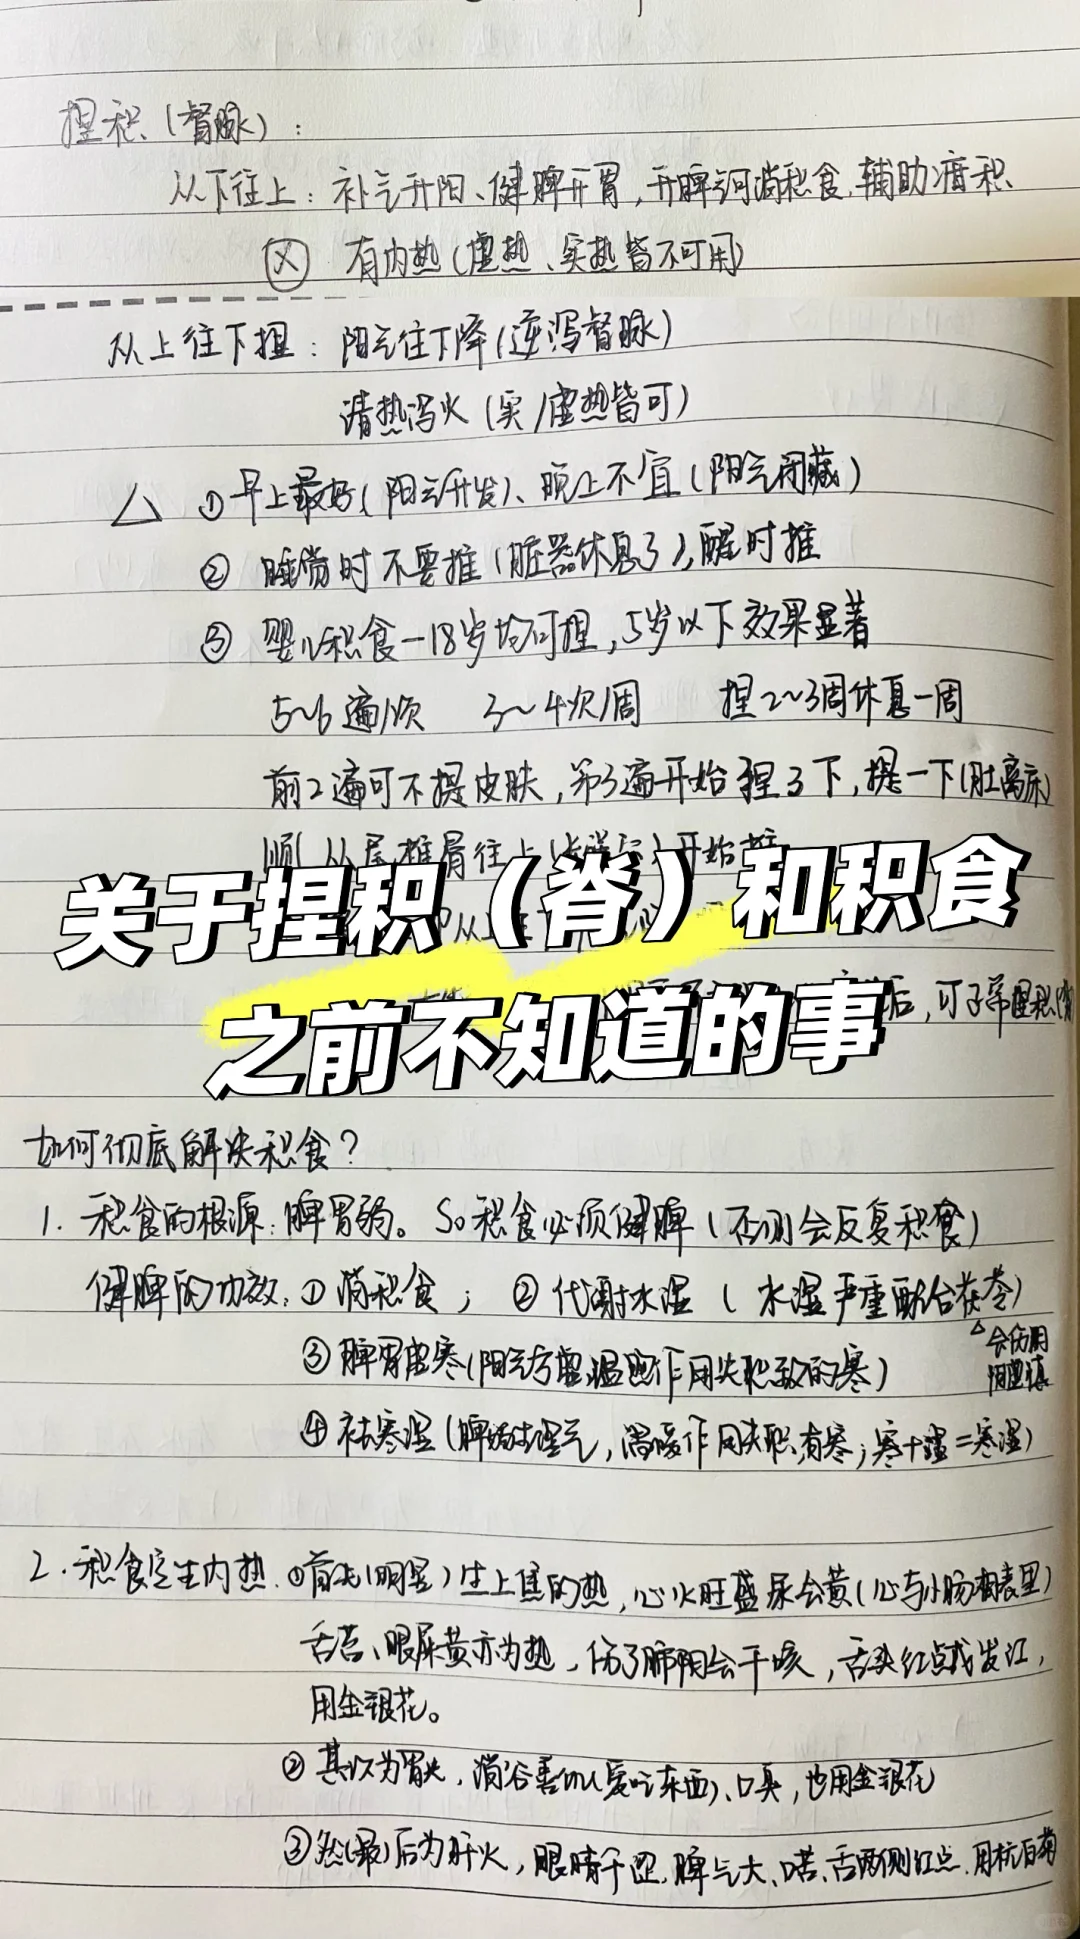 捏积（督脉）：
从下往上：补气升阳、健脾开胃，开脾河消积食，辅助消积、
Ⓧ 有内热（虚热、实热皆不可用）
从上往下捏：阳气往下降（逆泻督脉）
清热泻火（实/虚热皆可）
△ ①早上最好（阳气升发）、晚上不宜（阳气闭藏）
② 睡觉时不要推（脏器休息了），醒时推
③ 婴儿积食-18岁均可捏，5岁以下效果显著
5~6遍/次 3~4次/周 捏2~3周休息一周
前2遍可不提皮肤，第3遍开始捏3下，提一下（肚离床）
从尾椎骨往上 开始
关于捏积（脊）和积食
从上
后，可了常捏积
之前不知道的事
如何彻底解决积食？
1. 积食的根源：脾胃弱。So积食必须健脾（否则会反复积食）
健脾的功效：①消积食； ②代谢水湿（水湿严重配合茯苓）
△会伤阴
阴虚慎
③脾胃虚寒（阳气亏虚温煦作用失职致的寒）
④祛寒湿（脾 气，温暖作用失职，有寒；寒+湿=寒湿）
2. 积食定生内热.①首先（明显）生上焦的热，心火旺盛尿会黄（心与小肠相表里）
舌苔、眼屎黄亦为热，伤了肺阴会干咳，舌头红点或发红，
用金银花。
②其次为胃火，消谷善饥（爱吃东西）、口臭，也用金银花
③然（最）后为肝火，眼睛干涩，脾气大、口苦、舌两侧红点，用杭白菊